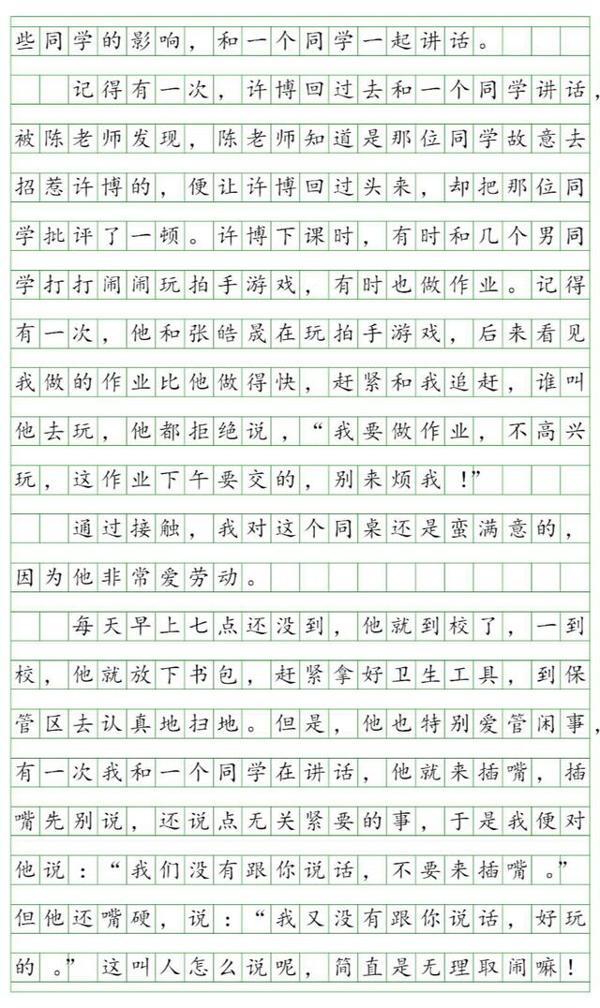 些同学的影响，和一个同学一起讲话。
记得有一次，许博回过去和一个同学讲话，
被陈老师发现，陈老师知道是那位同学故意去
招惹许博的，便让许博回过头来，却把那位同
学批评了一顿。许博下课时，有时和几个男同
学打打闹闹玩拍手游戏，有时也做作业。记得
有一次，他和张皓晟在玩拍手游戏，后来看见
我做的作业比他做得快，赶紧和我追赶，谁叫
他去玩，他都拒绝说，“我要做作业，不高兴
玩，这作业下午要交的，别来烦我！”
通过接触，我对这个同桌还是蛮满意的，
因为他非常爱劳动。
每天早上七点还没到，他就到校了，一到
校，他就放下书包，赶紧拿好卫生工具，到保
管区去认真地扫地。但是，他也特别爱管闲事，
有一次我和一个同学在讲话，他就来插嘴，插
嘴先别说，还说点无关紧要的事，于是我便对
他说：“我们没有跟你说话，不要来插嘴。”
但他还嘴硬，说：“我又没有跟你说话，好玩
的。”这叫人怎么说呢，简直是无理取闹嘛！